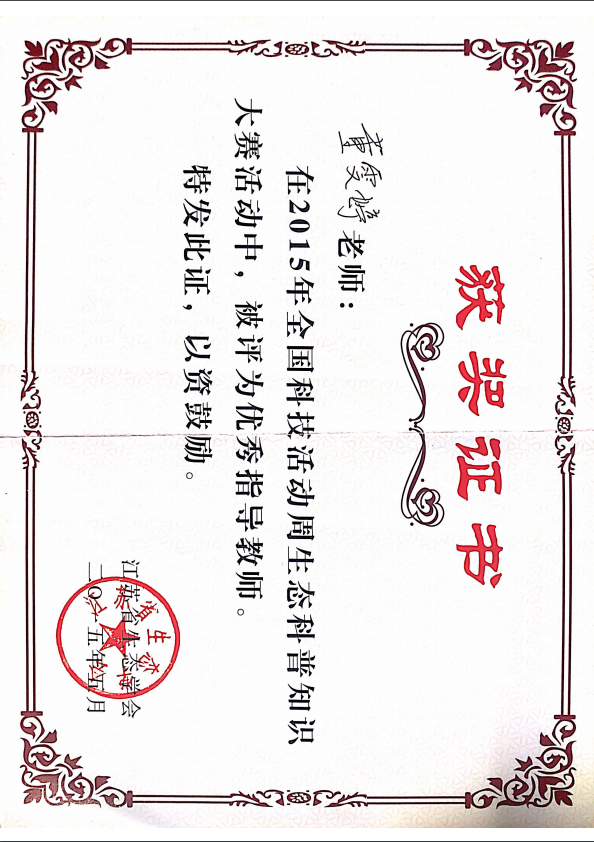 获奖证书
董雯婷老师：
在2015年全国科技活动周生态科普知识
大赛活动中，被评为优秀指导教师。
特发此证，以资鼓励。
江苏省生态学会
二〇一五年五月